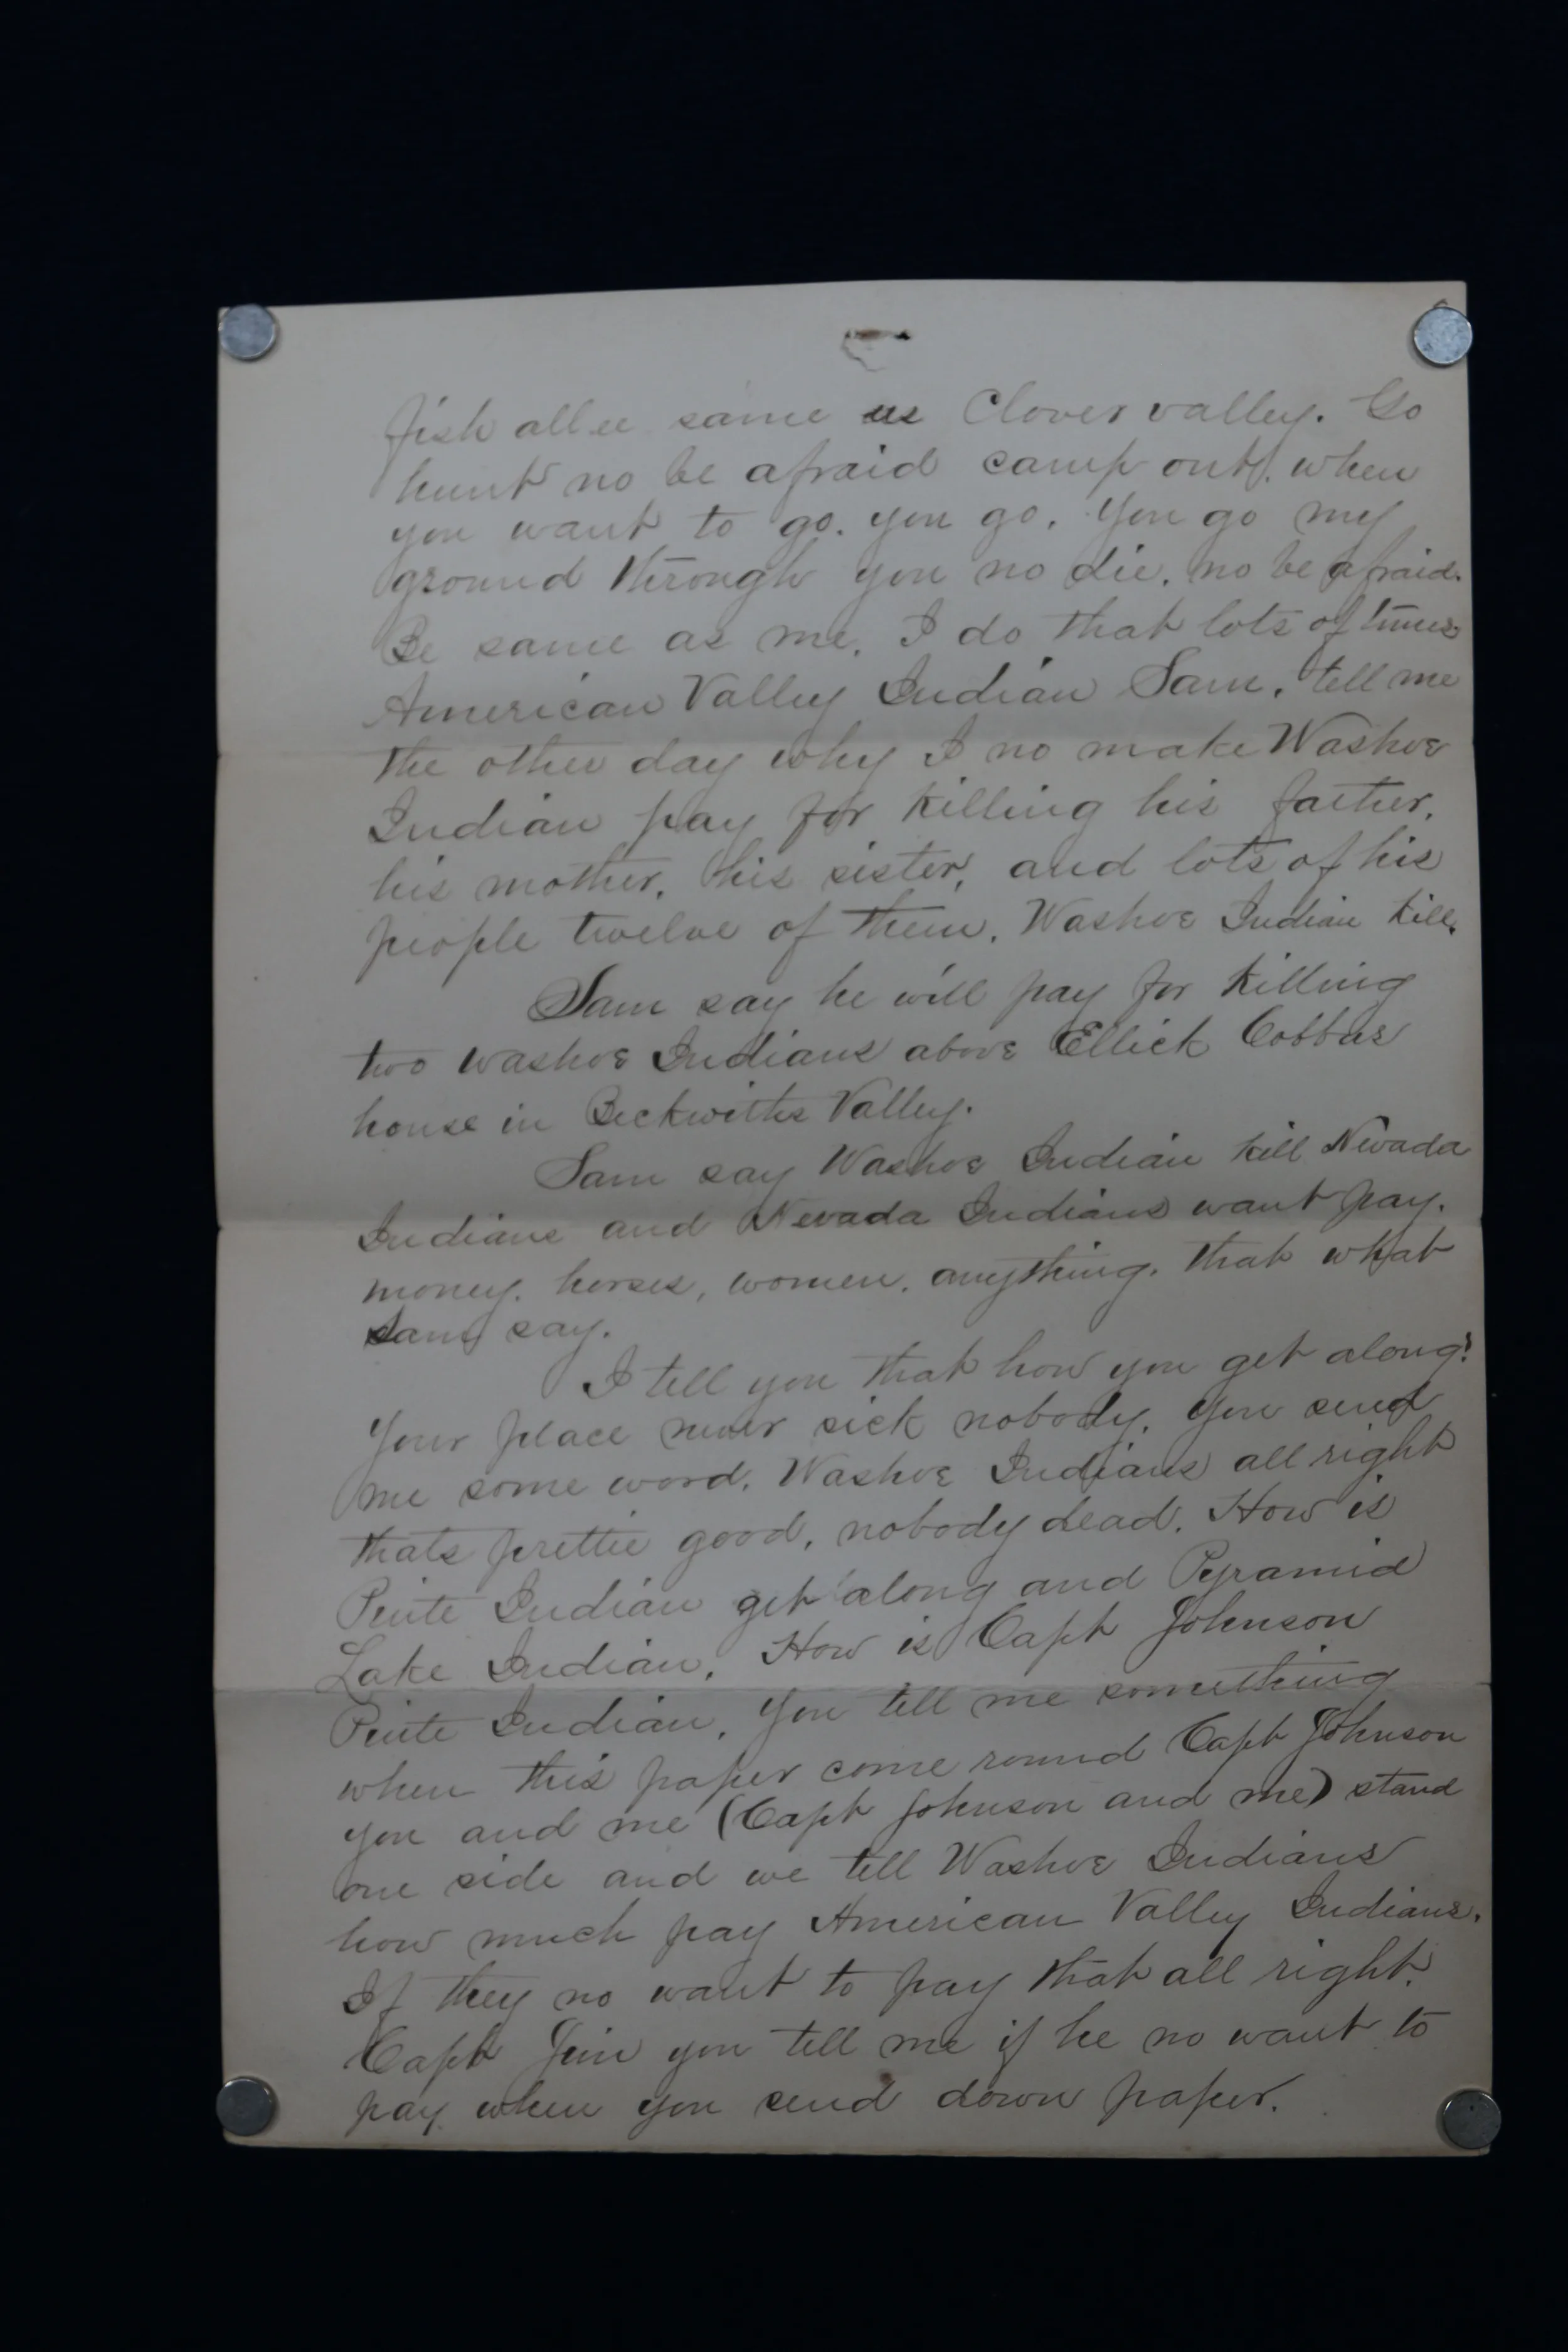 fish allee same us Clover valley. Go
hunt no be afraid camp out, when
you want to go. you go. You go my
ground through you no die, no be afraid.
Be same as me. I do that lots of times
American Valley Indian Sam, tell me
the other day why I no make Washoe
Indian pay for killing his father,
his mother, his sister, and lots of his
people twelve of them. Washoe Indian kill.
Sam say he will pay for killing
two washoe Indians above Ellick
house in Beckwiths Valley.
Sam say Washoe Indian kill Nevada
Indians and Nevada Indians want pay.
money, horses, women, anything. that what
Sam say.
I tell you that how you get along?
Your place never sick nobody. You send
me some word. Washoe Indians all right
thats prettie good, nobody dead. How is
Peute Indian get along and Pyramid
Lake Indian. How is Capt Johnson
Piute Indian. You tell me something
when this paper come round Capt Johnson
you and me (Capt Johnson and me) stand
one side and we tell Washoe Indians
how much pay American Valley Indians.
If they no want to pay that all right.
Capt Jim you tell me if he no want to
pay when you send down paper.